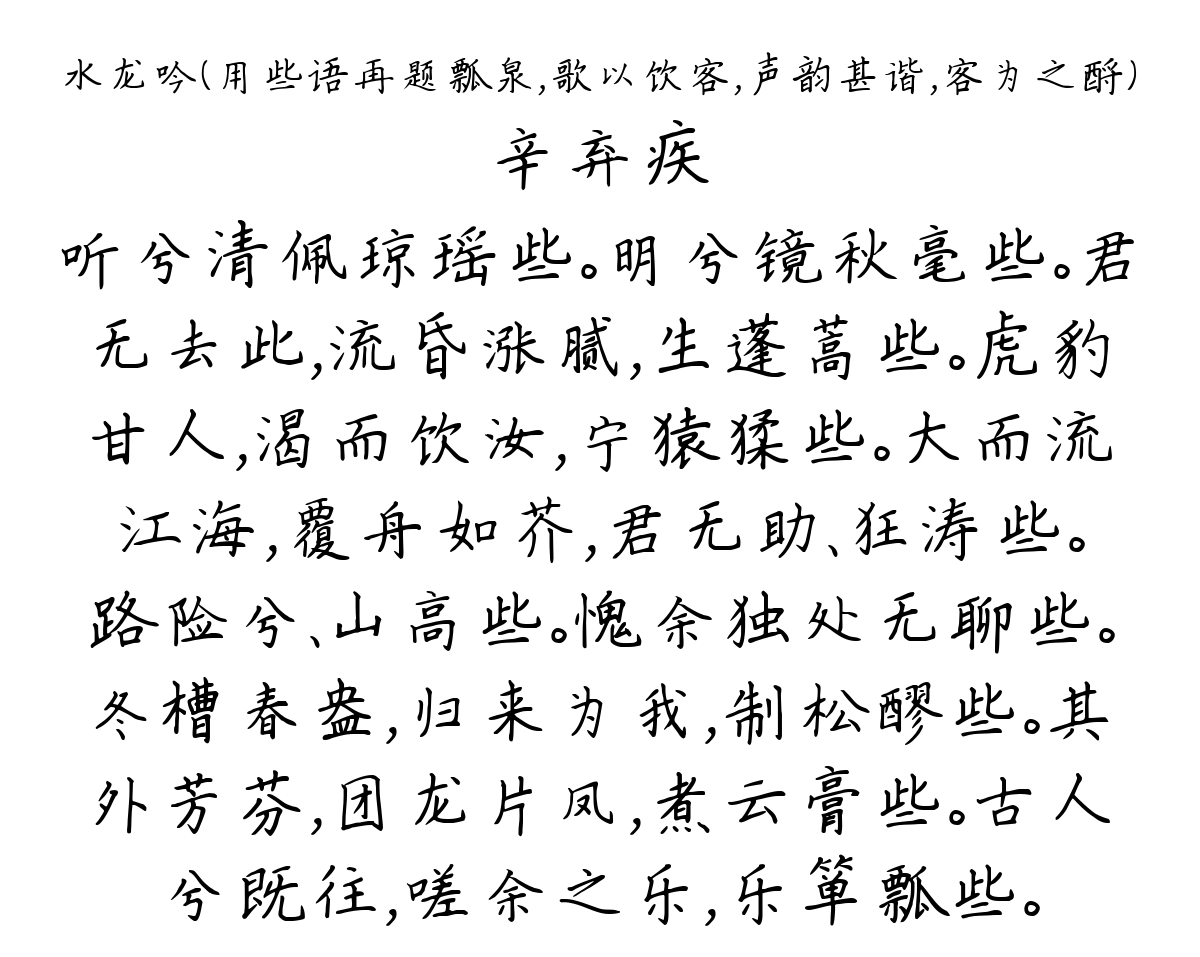 水龙吟(用些语再题瓢泉,歌以饮客,声韵甚谐,客为之酹)
辛弃疾
听兮清佩琼瑶些。明兮镜秋毫些。君
无去此,流昏涨腻,生蓬蒿些。虎豹
甘人,渴而饮汝,宁猿猱些。大而流
江海,覆舟如芥,君无助、狂涛些。
路险兮、山高些。愧余独处无聊些。
冬槽春盎,归来为我,制松醪些。其
外芳芬,团龙片凤,煮云膏些。古人
兮既往,嗟余之乐,乐箪瓢些。